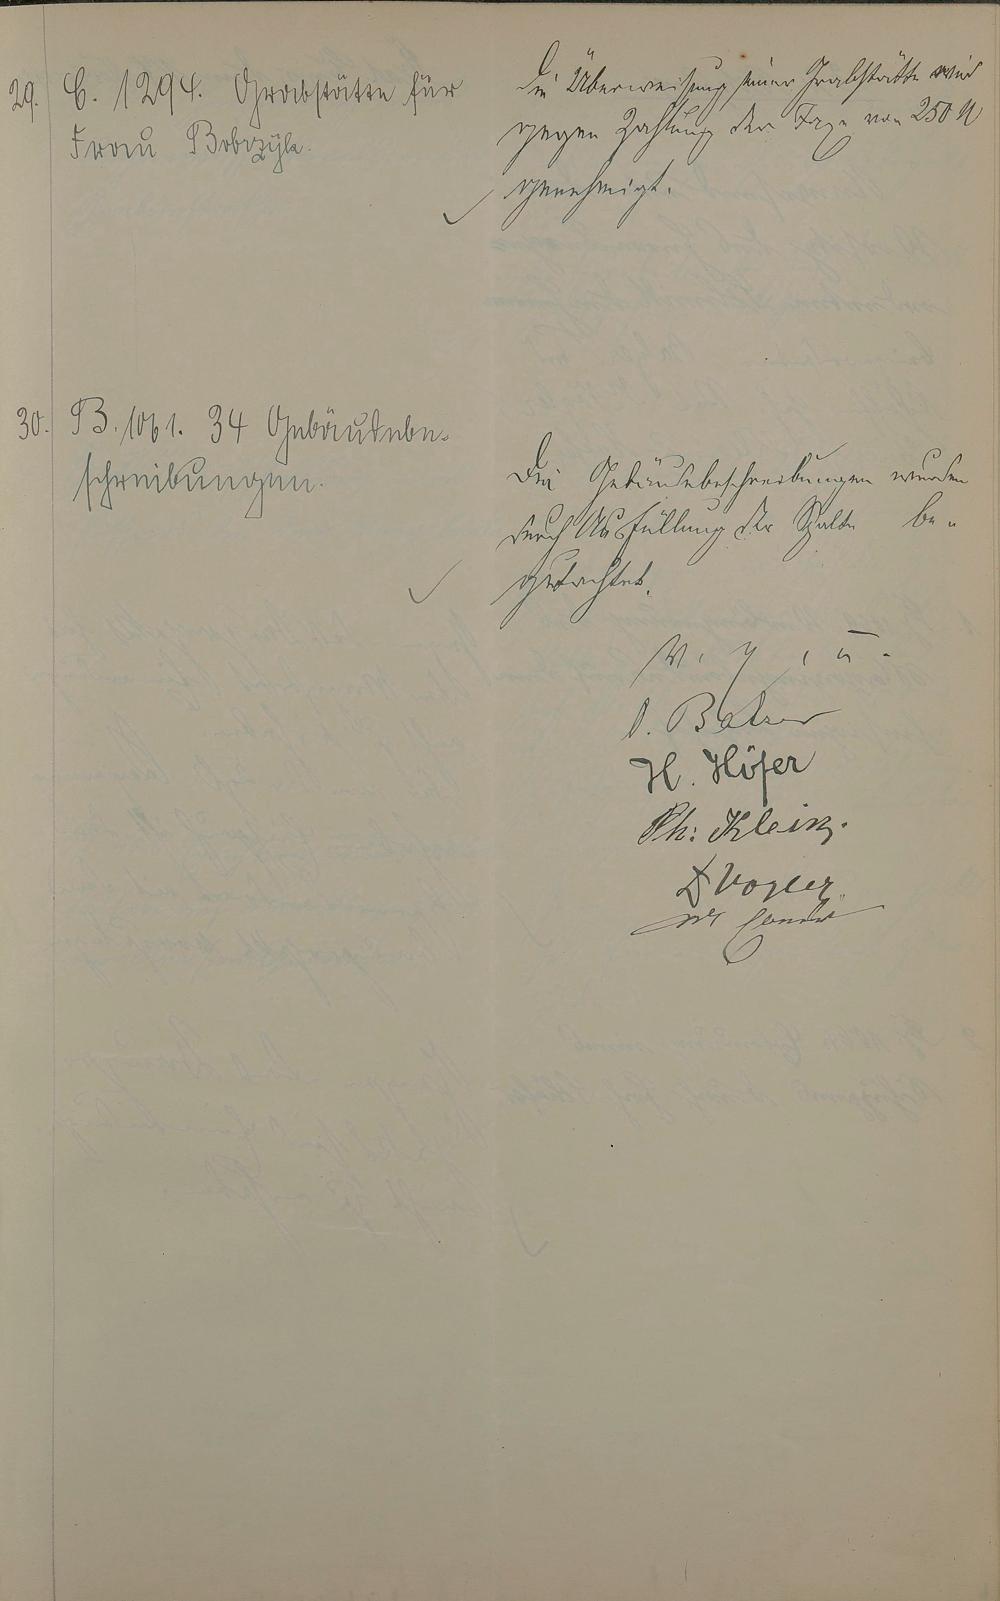 29. C. 1294. Grabstätte für
Frau Bobrzyk.
Die Überweisung einer Grabstätte wird
gegen Zahlung der Taxe von 250 M
genehmigt.
30. B. 1061. 34 Gebäudebe-
schreibungen.
Die Gebäudebeschreibungen wurden
durch Ausfüllung der Spalte be-
gutachtet.
v. g. u.
H. Höfer
Ph: Klein.
D Vogler